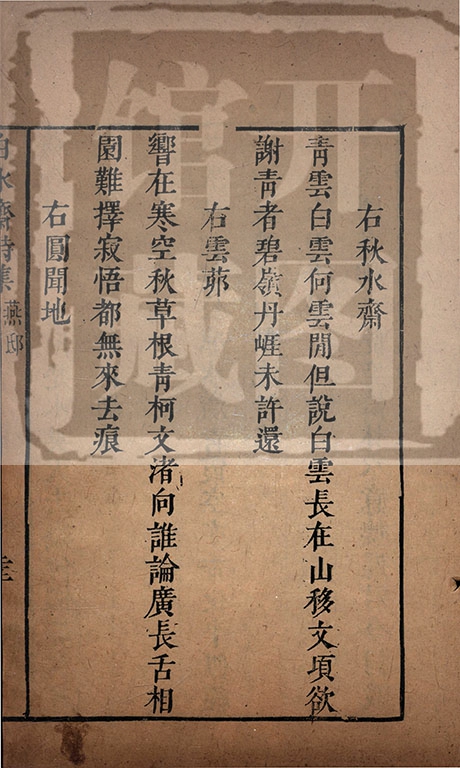 右秋水齋
青雲白雲何雲閒但說白雲長在山移文項欲
謝青者碧嶺丹崖未許還
右雲茆
響在寒空秋草根青柯文渚向誰論廣長舌相
園難擇寂悟都無來去痕
右圓聞地
白水齋詩集 燕邸
开图
馆藏